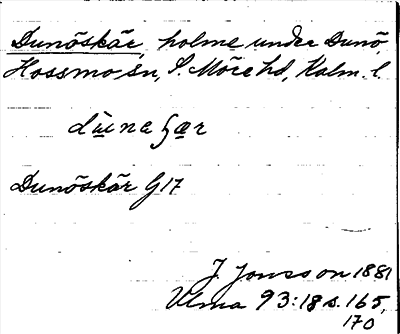 Dunöskär, holme under Dunö,
Hossmo sn, S. Möre hd, Kalm. l.
Dunöskär G17
J. Jonsson 1881
Ulma 93:18 s. 165,
170